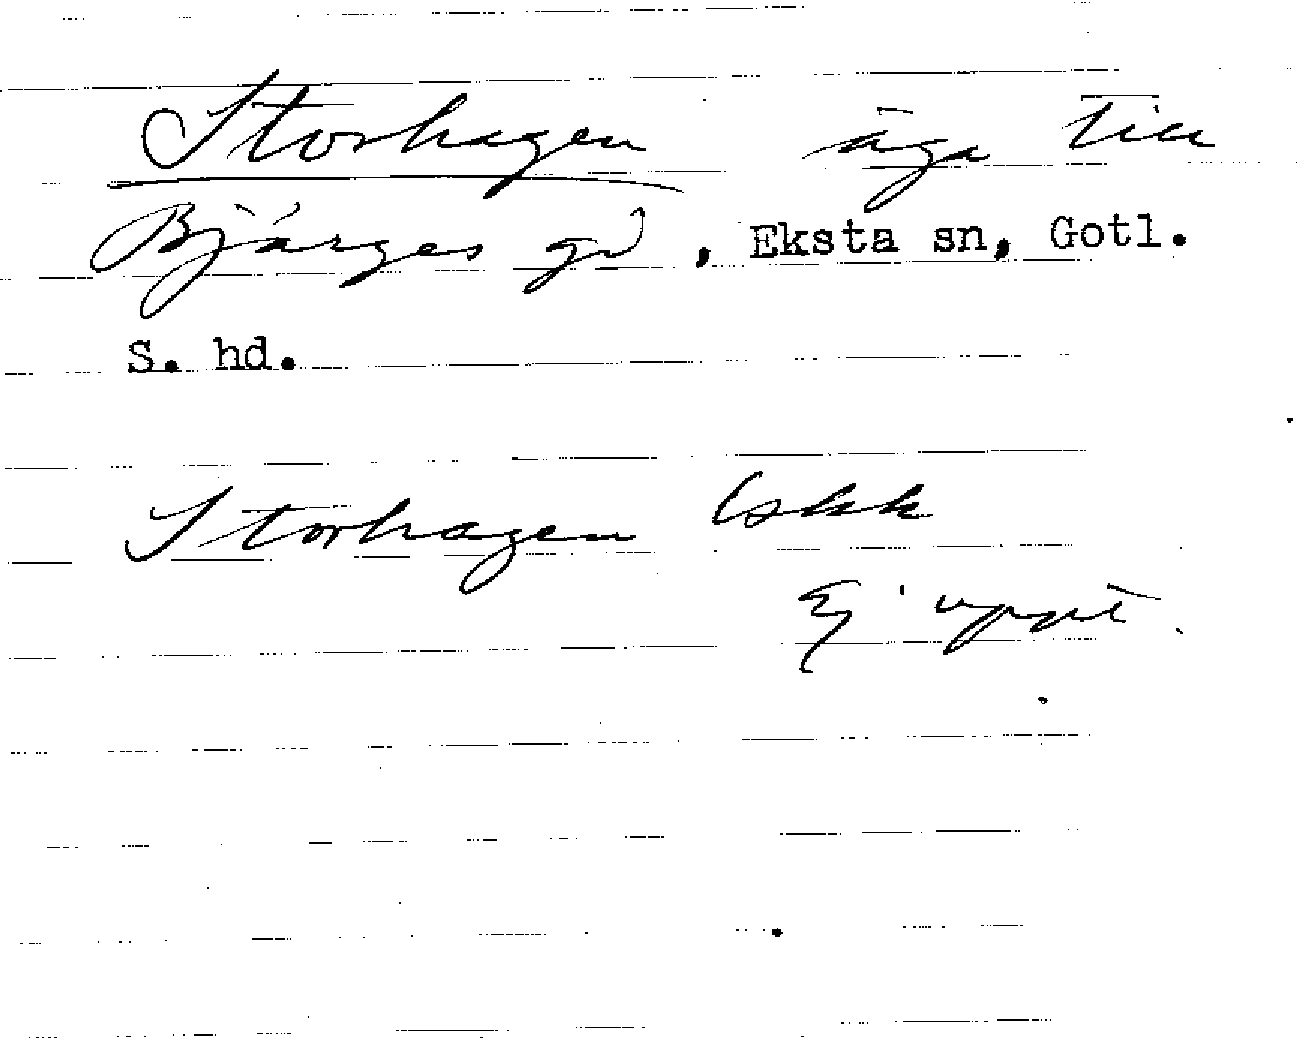 Storhagen äga till
Bjärges gd, Eksta sn, Gotl.
S. hd.
Storhagen
Ej uppt.